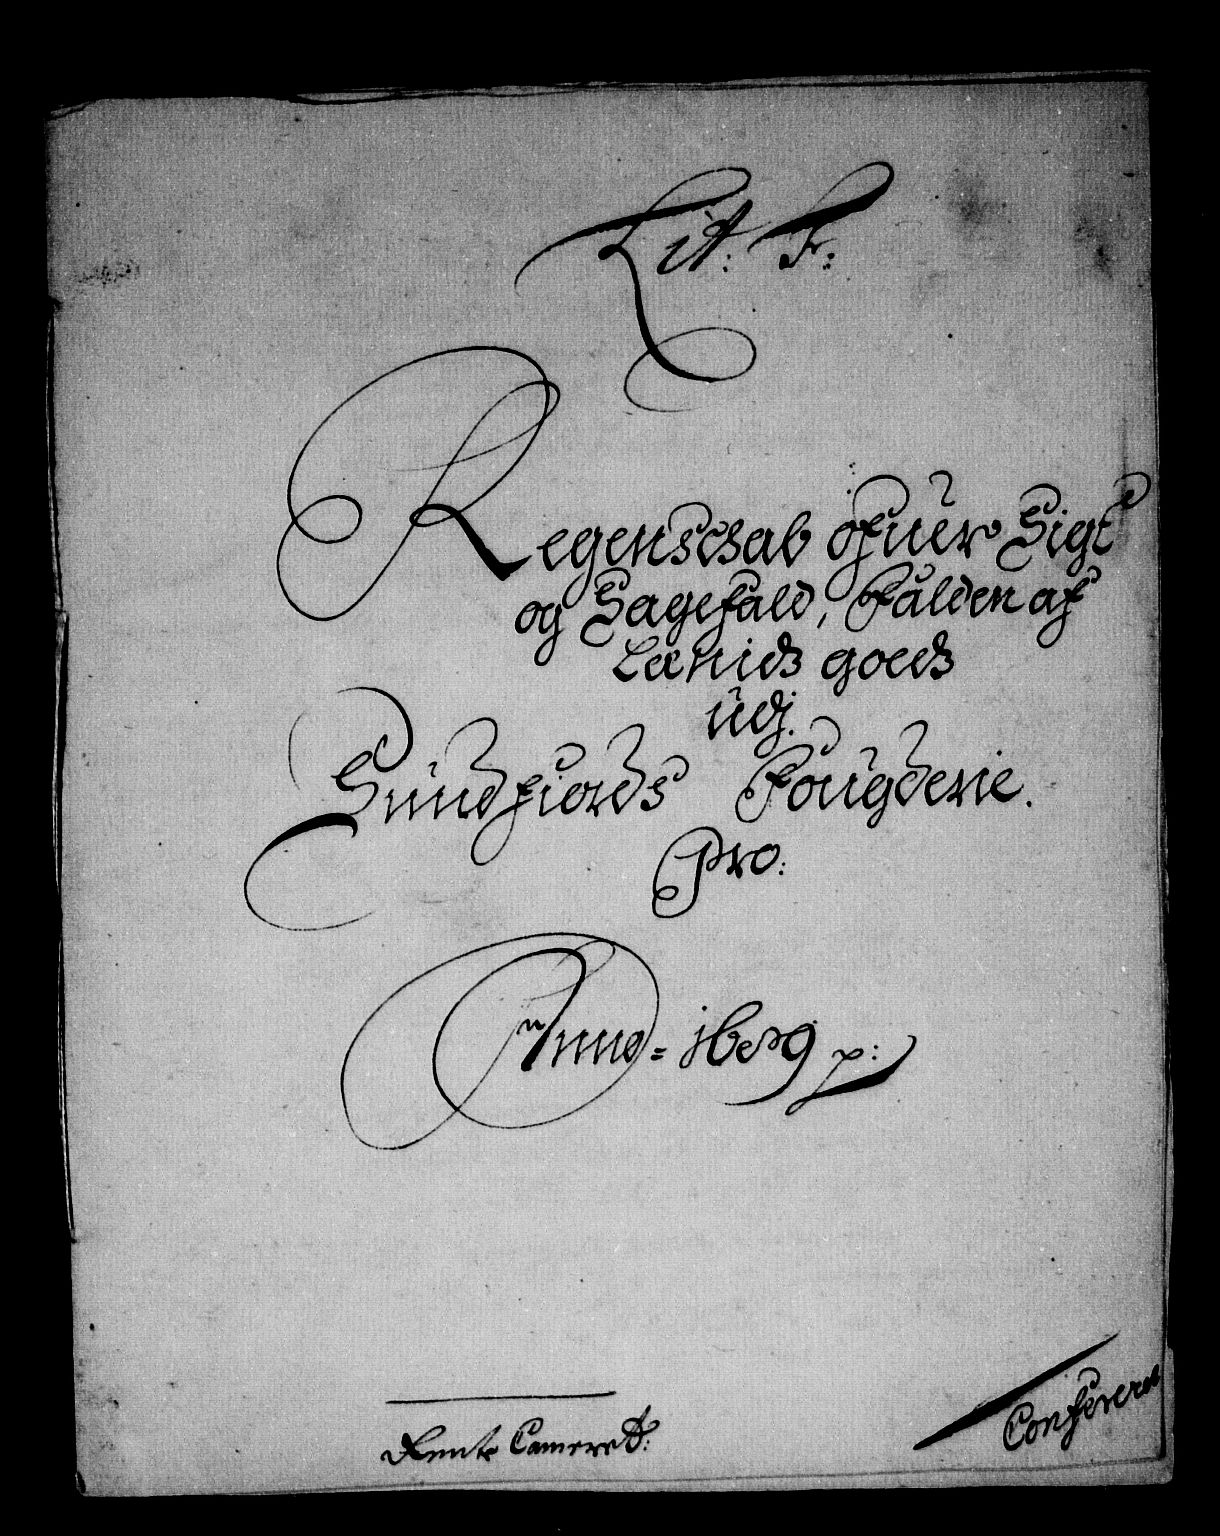 Lit: F:
Regenschab ofuer Sigt
og Sagefald, Falden af
Lænids goeds
udj.
Sundfiords Fougderie.
Pro:
Anno = 1689 p:
Rente Cameret:
Confererit